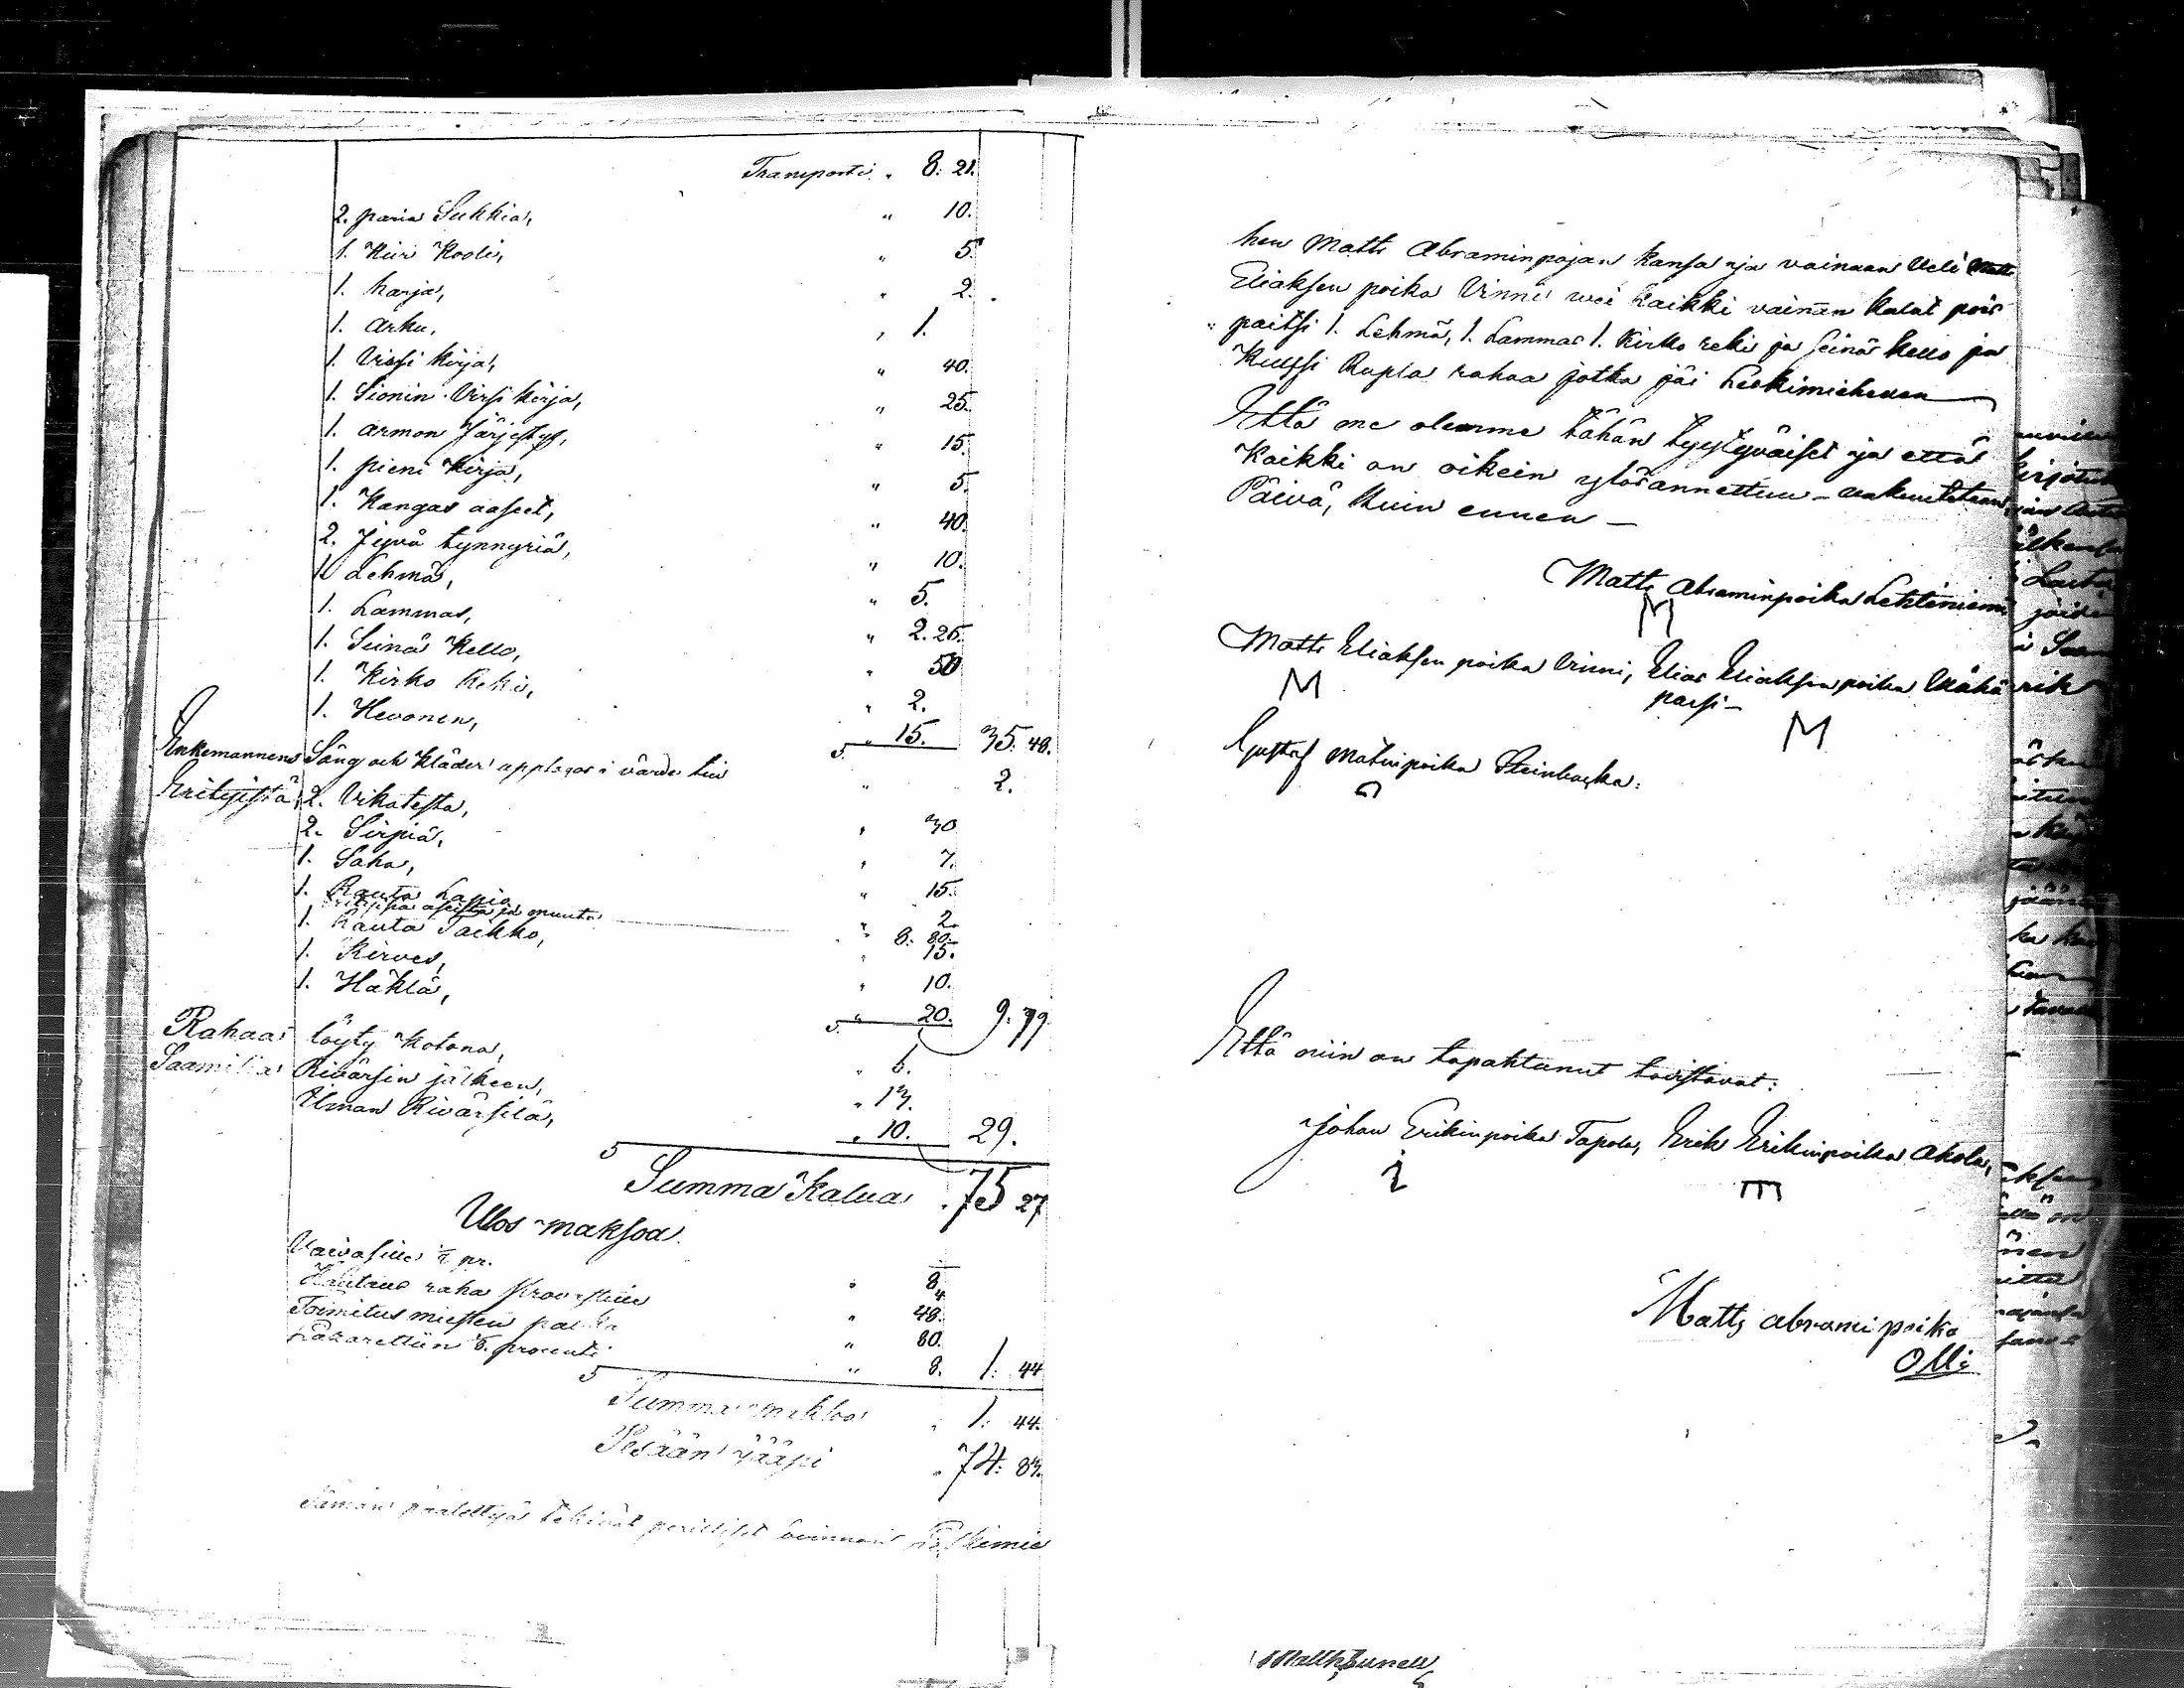 Transporti „ 8: 21.
2. paria Sukkia, „ 10.
1. Kiri Kooli, „ 5.
1. harja, „ 2.
1. arku, „ 1.
1. Virsi kirja, „ 40.
1. Sionin Virsi kirja, „ 25.
1. armon Järjestys, „ 15.
1. pieni Kirja, „ 5.
1. Kangas aaseet, „ 40.
2. Jyvä tynnyriä, „ 10.
1. Lehmä, „ 5.
1. Lammas, „ 2. 25.
1. Seinä Kello, „ 50
1. Kirko Reki, „ 2.
1. Hevonen, „ 15. 35. 48.
Enkemannens Säng och Kläder upptagas i värde till „ 2.
Erityistä, 2. Vikatesta, „ 30
2. Sirpiä, „ 7.
1. Saha, „ 15.
1. Rauta Lapio „ 2.
aseista ja muuta „ 8: 80.
1. Rauta Taikko, „ 15.
1. Kirves, „ 10.
1. Häklä, „ 20. 9: 79
Rahaa löyty Kotona, „ 6.
Saamisia Rivärsin jälkeen, „ 13.
Ilman Rivärsilä, „ 10. 29.
Summa Kalua „ 75 27
Ulos maksoa
Vaivasille ½ pr. „ 8
Hautaus raha „ 48.
Toimitus miesten palkka „ 80.
Lasarettiin 8. procenti „ 8. 1: 44
Summa maksoa „ 1: 44.
Pesään jääpi „ 74: 83.
Tämän päätettyä tekivät perilliset Leskimie
hen Matts Abraminpojan kansa ja vainaan Veli
Eliaksen poika Vinni wei kaikki vainan kalut pois
paitsi 1. Lehmä, 1. Lammas 1. Kirko reki ja seinä kello ja
Kuussi Rupla rahaa jotka jäi Leskimiehellen
Että me olemme tähän tyytyväiset ja että
Kaikki on oikein ylösannettuu – vakuutetaan,
Päivä, kuin ennen –
Matts Abraminpoika Lehtiniemi
M
Matts Eliaksen poika Vinni, Elias Eliaksen poika Vähä
passi –
M M
Gustaf Matinpoika Steinbacka:
Että niin on tapahtunut toistavat:
Johan Erikinpoika Tapola, Erik Erikinpoika Akola,
Matts Abrami poika
Olli